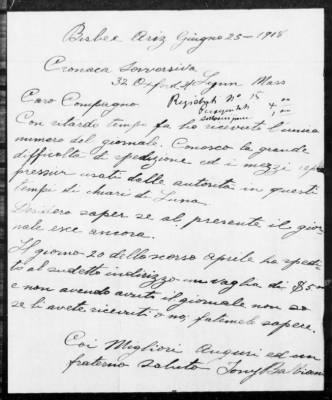 Bisbee Ariz Giugno 25 - 1918
Cronaca Sovversiva
32 Oxford St Lynn Mass
Caro Compagno
Con ritardo tempo fa ho ricevuto l'unico
numero del giornale. Conosco la grande
difficoltà di spedizione ed i mezzi
usati dalle autorità in questi
tempi di chiari di Luna.
Desidero saper se al presente il gior
nale esce ancora.
Il giorno 20 dello scorso Aprile ho spedi
to al sudetto indirizzo un vaglia di $5.00
e non avendo avuto il giornale non so
se li avete ricevuti o no, fatemelo sapere.
Coi Migliori Auguri ed un
fraterno saluto Tony